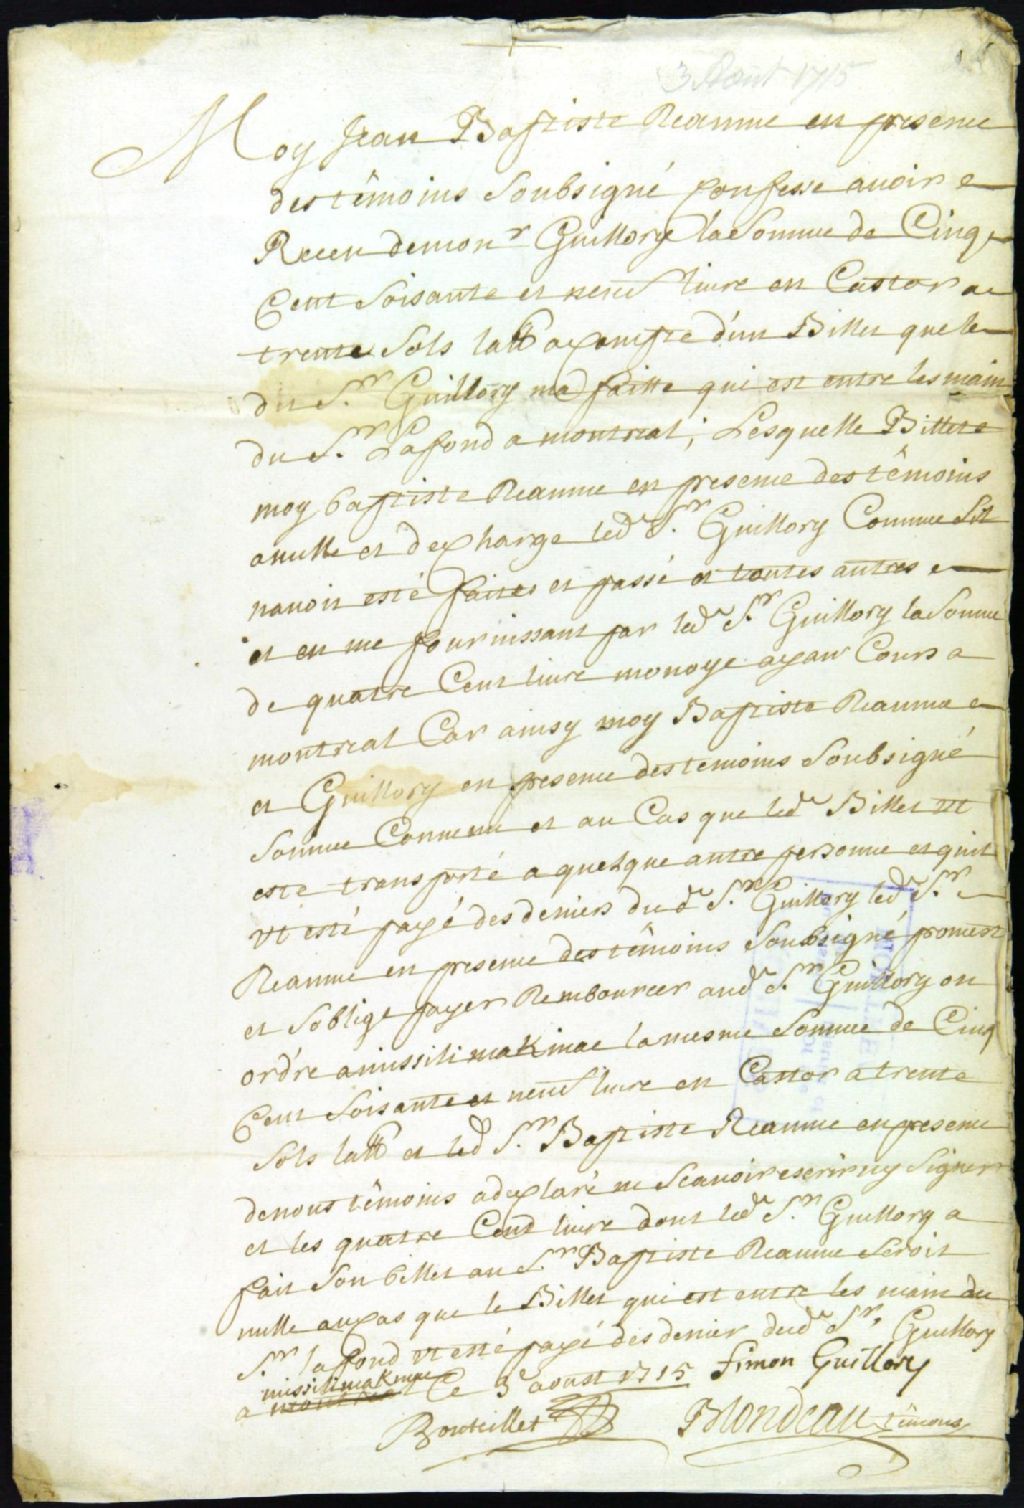 3 Aout 1715
Moy Jean Baptiste Reaume en presence
des têmoins Soubsigné Confesse avoir
Receu de mon.r Guillory la Somme de Cinq
Cent Soisante et neuf livre en Castor a
trente Sols la tt a Compte d'un Billet que le
du S.r Guillory ma faitte qui est entre les main
du S.r Lafond a montreal; Lesquelle Billet
moy baptiste Reaume en presence des têmoins
anulle et decharge led. S.r Guillory Comme Sil
navoit esté faites et passé et toutes autres
et en me fournissant par led. S.r Guillory la Somme
de quatre Cent livre monoye ayant Cours a
montreal Car ainsy moy Baptiste Reaume
et Guillory en presence des temoins Soubsigné
Sommes Convenu et au Cas que led. Billet ut
esté transporté a quelque autre personne et quil
ut esté payé des deniers du d. S.r Guillory led. S.r
Reaume en presence des têmoins Soubsigné promest
et Soblige payer Rembourcer aud. S.r Guillory ou
ordre a missilimakinac la mesme Somme de Cinq
Cent Soisante et neuf livre en Castor a trente
Sols la tt et led S.r Baptiste Reaume en presence
de nous têmoins a declaré ne Scavoir escrire ny Signer
et les quatre Cend livre dont led. S.r Guillory a
fait Son billet au S.r Baptiste Reaume Seroit
nulle au cas que le Billet qui est entre les main du
S.r laffond ut esté payé des denier dud. S.r Guillory
missilimakinac
a montreal Ce 3 aoust 1715 Simon Guillory
Bouteillet Blondeau têmoins